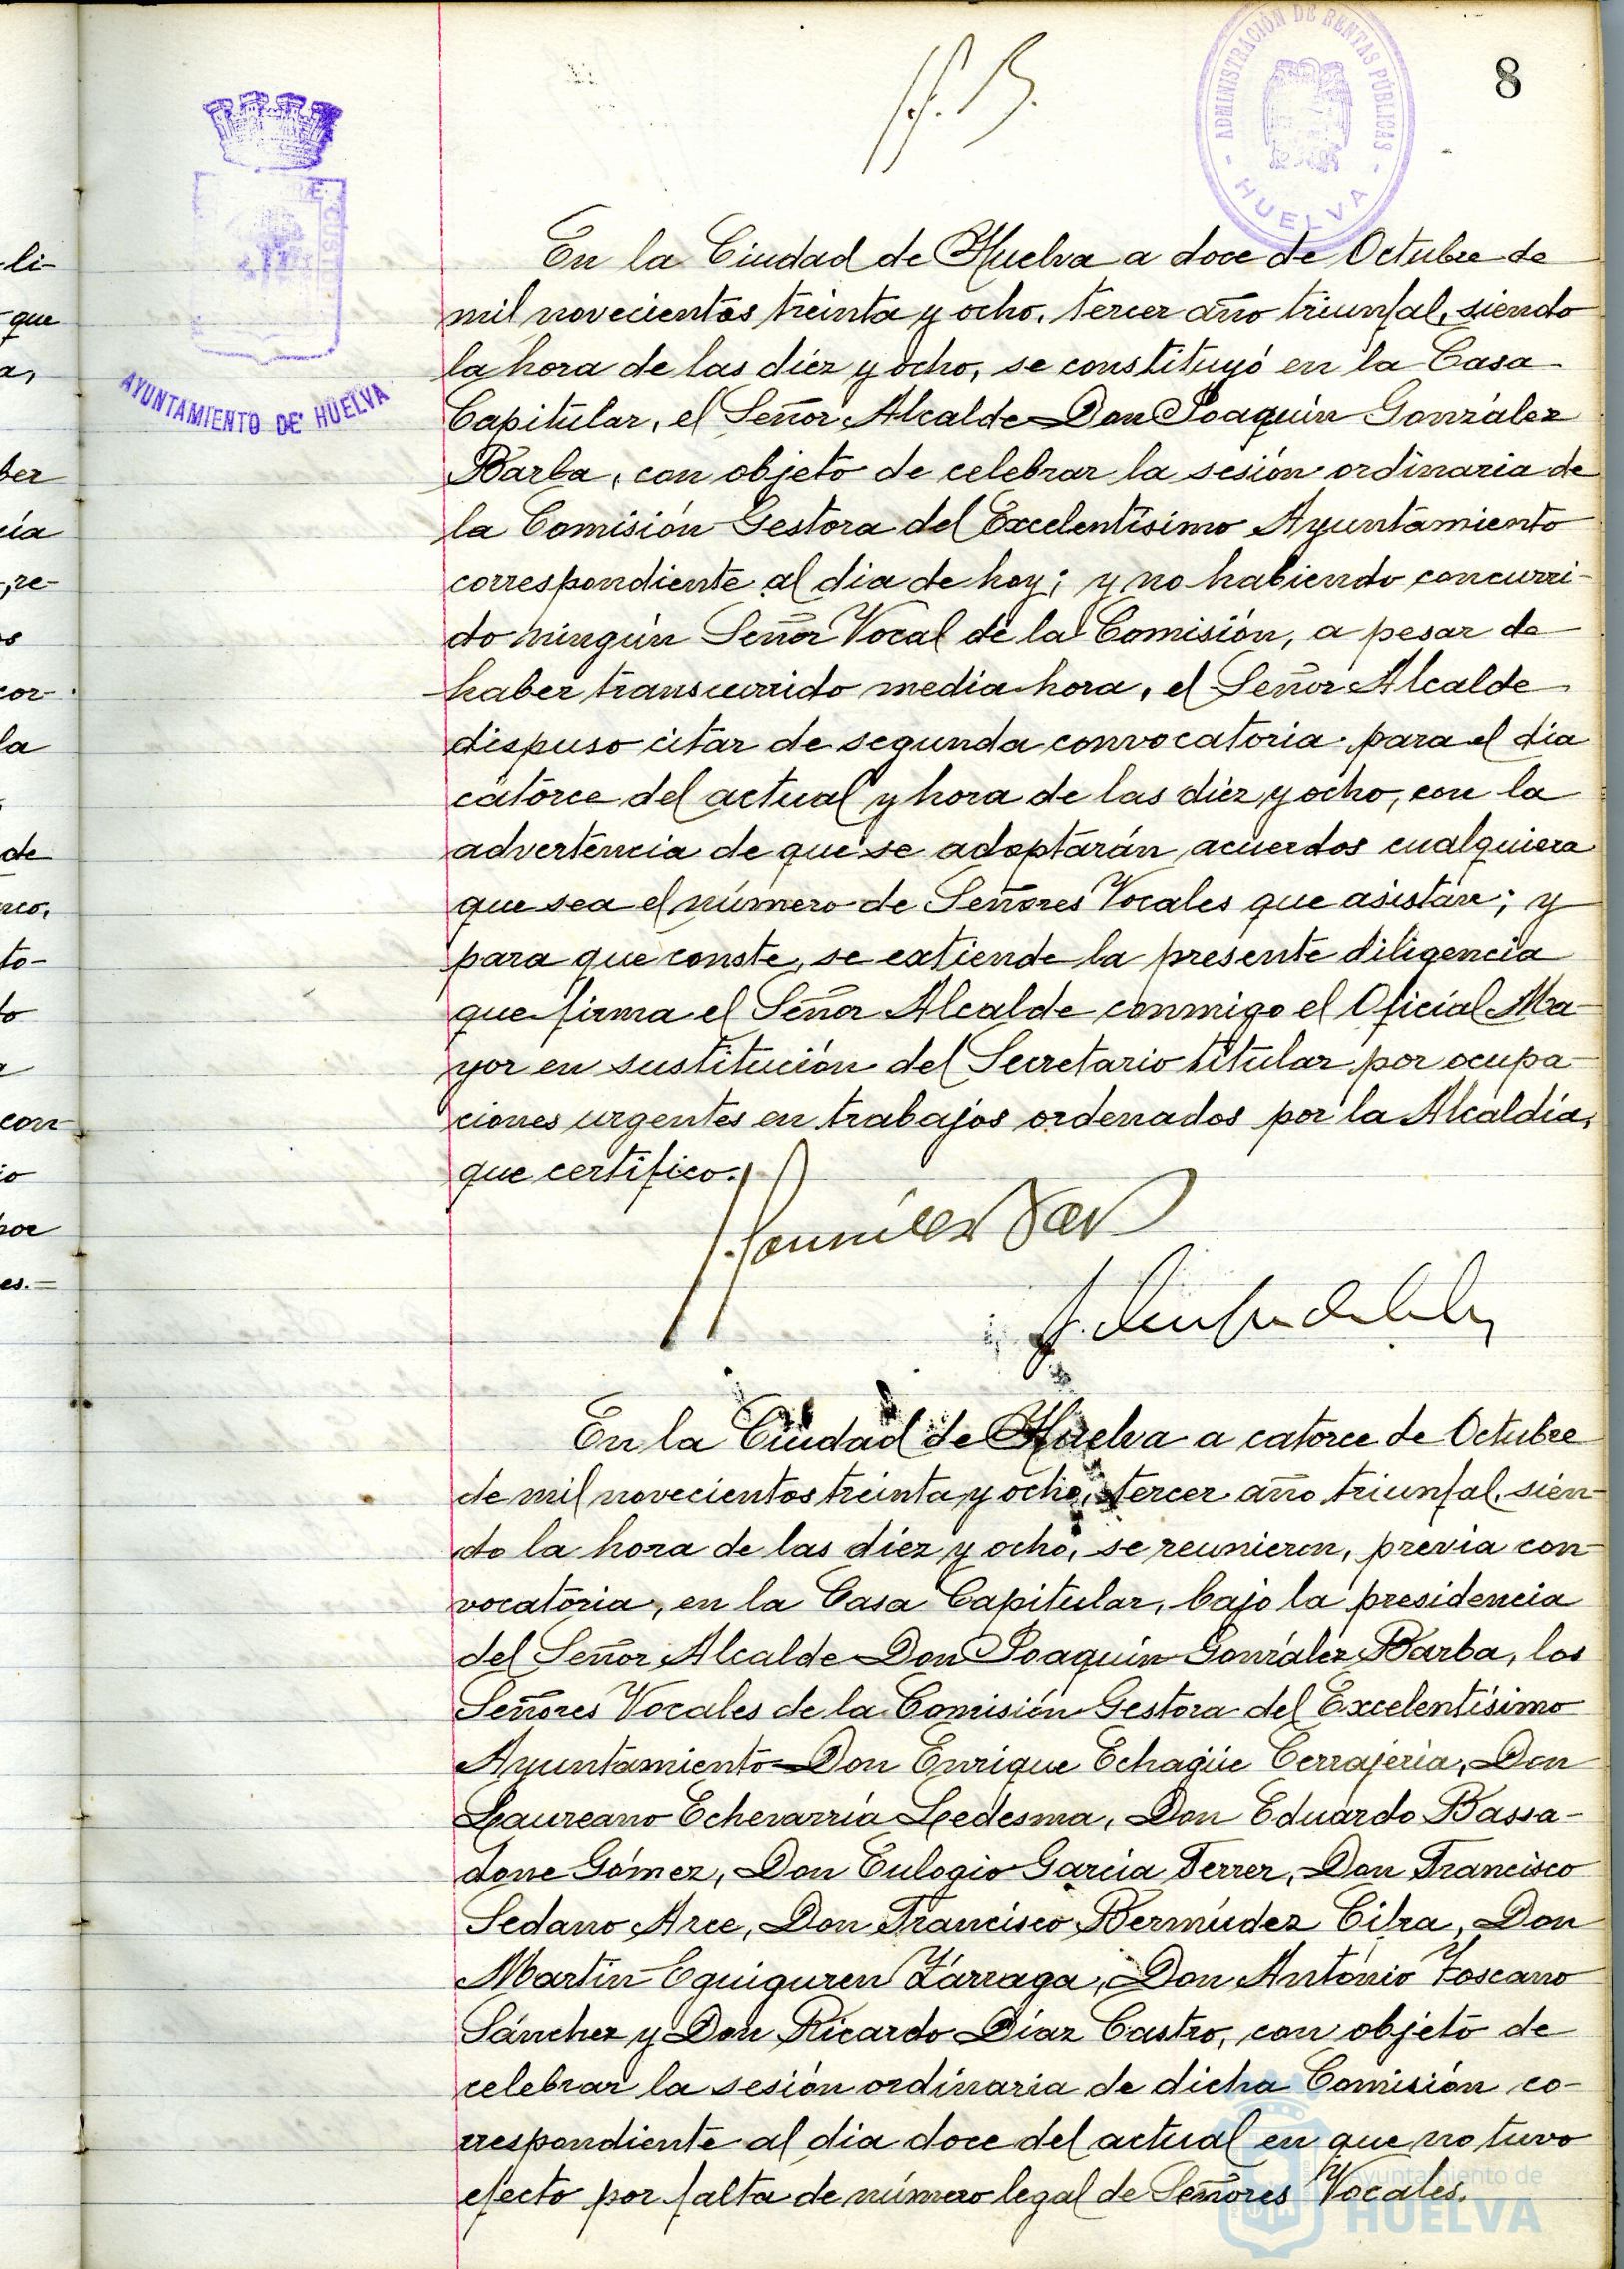 8
ADMINISTRACIÓN DE RENTAS PÚBLICAS
HUELVA
AYUNTAMIENTO DE HUELVA
li-
que
a,
ber
cia
re-
s
cor-
la
de
nco,
to-
to
con-
io
por
es.=
En la Ciudad de Huelva a doce de Octubre de
mil novecientos treinta y ocho, tercer año triunfal, siendo
la hora de las diez y ocho, se constituyó en la Casa
Capitular, el Señor Alcalde Don Joaquín González
Barba, con objeto de celebrar la sesión ordinaria de
la Comisión Gestora del Excelentísimo Ayuntamiento
correspondiente al dia de hoy; y no habiendo concurri-
do ningún Señor Vocal de la Comisión, a pesar de
haber transcurrido media hora, el Señor Alcalde
dispuso citar de segunda convocatoria para el dia
catorce del actual y hora de las diez y ocho, con la
advertencia de que se adoptarán acuerdos cualquiera
que sea el número de Señores Vocales que asistan; y
para que conste, se extiende la presente diligencia
que firma el Señor Alcalde conmigo el Oficial Ma-
yor en sustitución del Secretario titular por ocupa-
ciones urgentes en trabajos ordenados por la Alcaldía,
que certifico.
En la Ciudad de Huelva a catorce de Octubre
de mil novecientos treinta y ocho, tercer año triunfal, sien-
do la hora de las diez y ocho, se reunieron, previa con-
vocatoria, en la Casa Capitular, bajo la presidencia
del Señor Alcalde Don Joaquín González Barba, los
Señores Vocales de la Comisión Gestora del Excelentísimo
Ayuntamiento Don Enrique Echagüe Cerrajería, Don
Laureano Echevarría Ledesma, Don Eduardo Bassa-
done Gómez, Don Eulogio García Ferrer, Don Francisco
Sedano Arce, Don Francisco Bermúdez Cilra, Don
Martín Eguiguren Zárraga, Don Antonio Toscano
Sánchez y Don Ricardo Díaz Castro, con objeto de
celebrar la sesión ordinaria de dicha Comisión co-
rrespondiente al dia doce del actual en que no tuvo
efecto por falta de número legal de Señores Vocales.
Ayuntamiento de
HUELVA